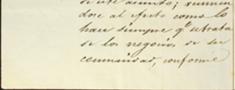 de este asunto; reunien
dose al efecto como lo
hace siempre qe. se trata
de los negocios de su
comunidad, conforme